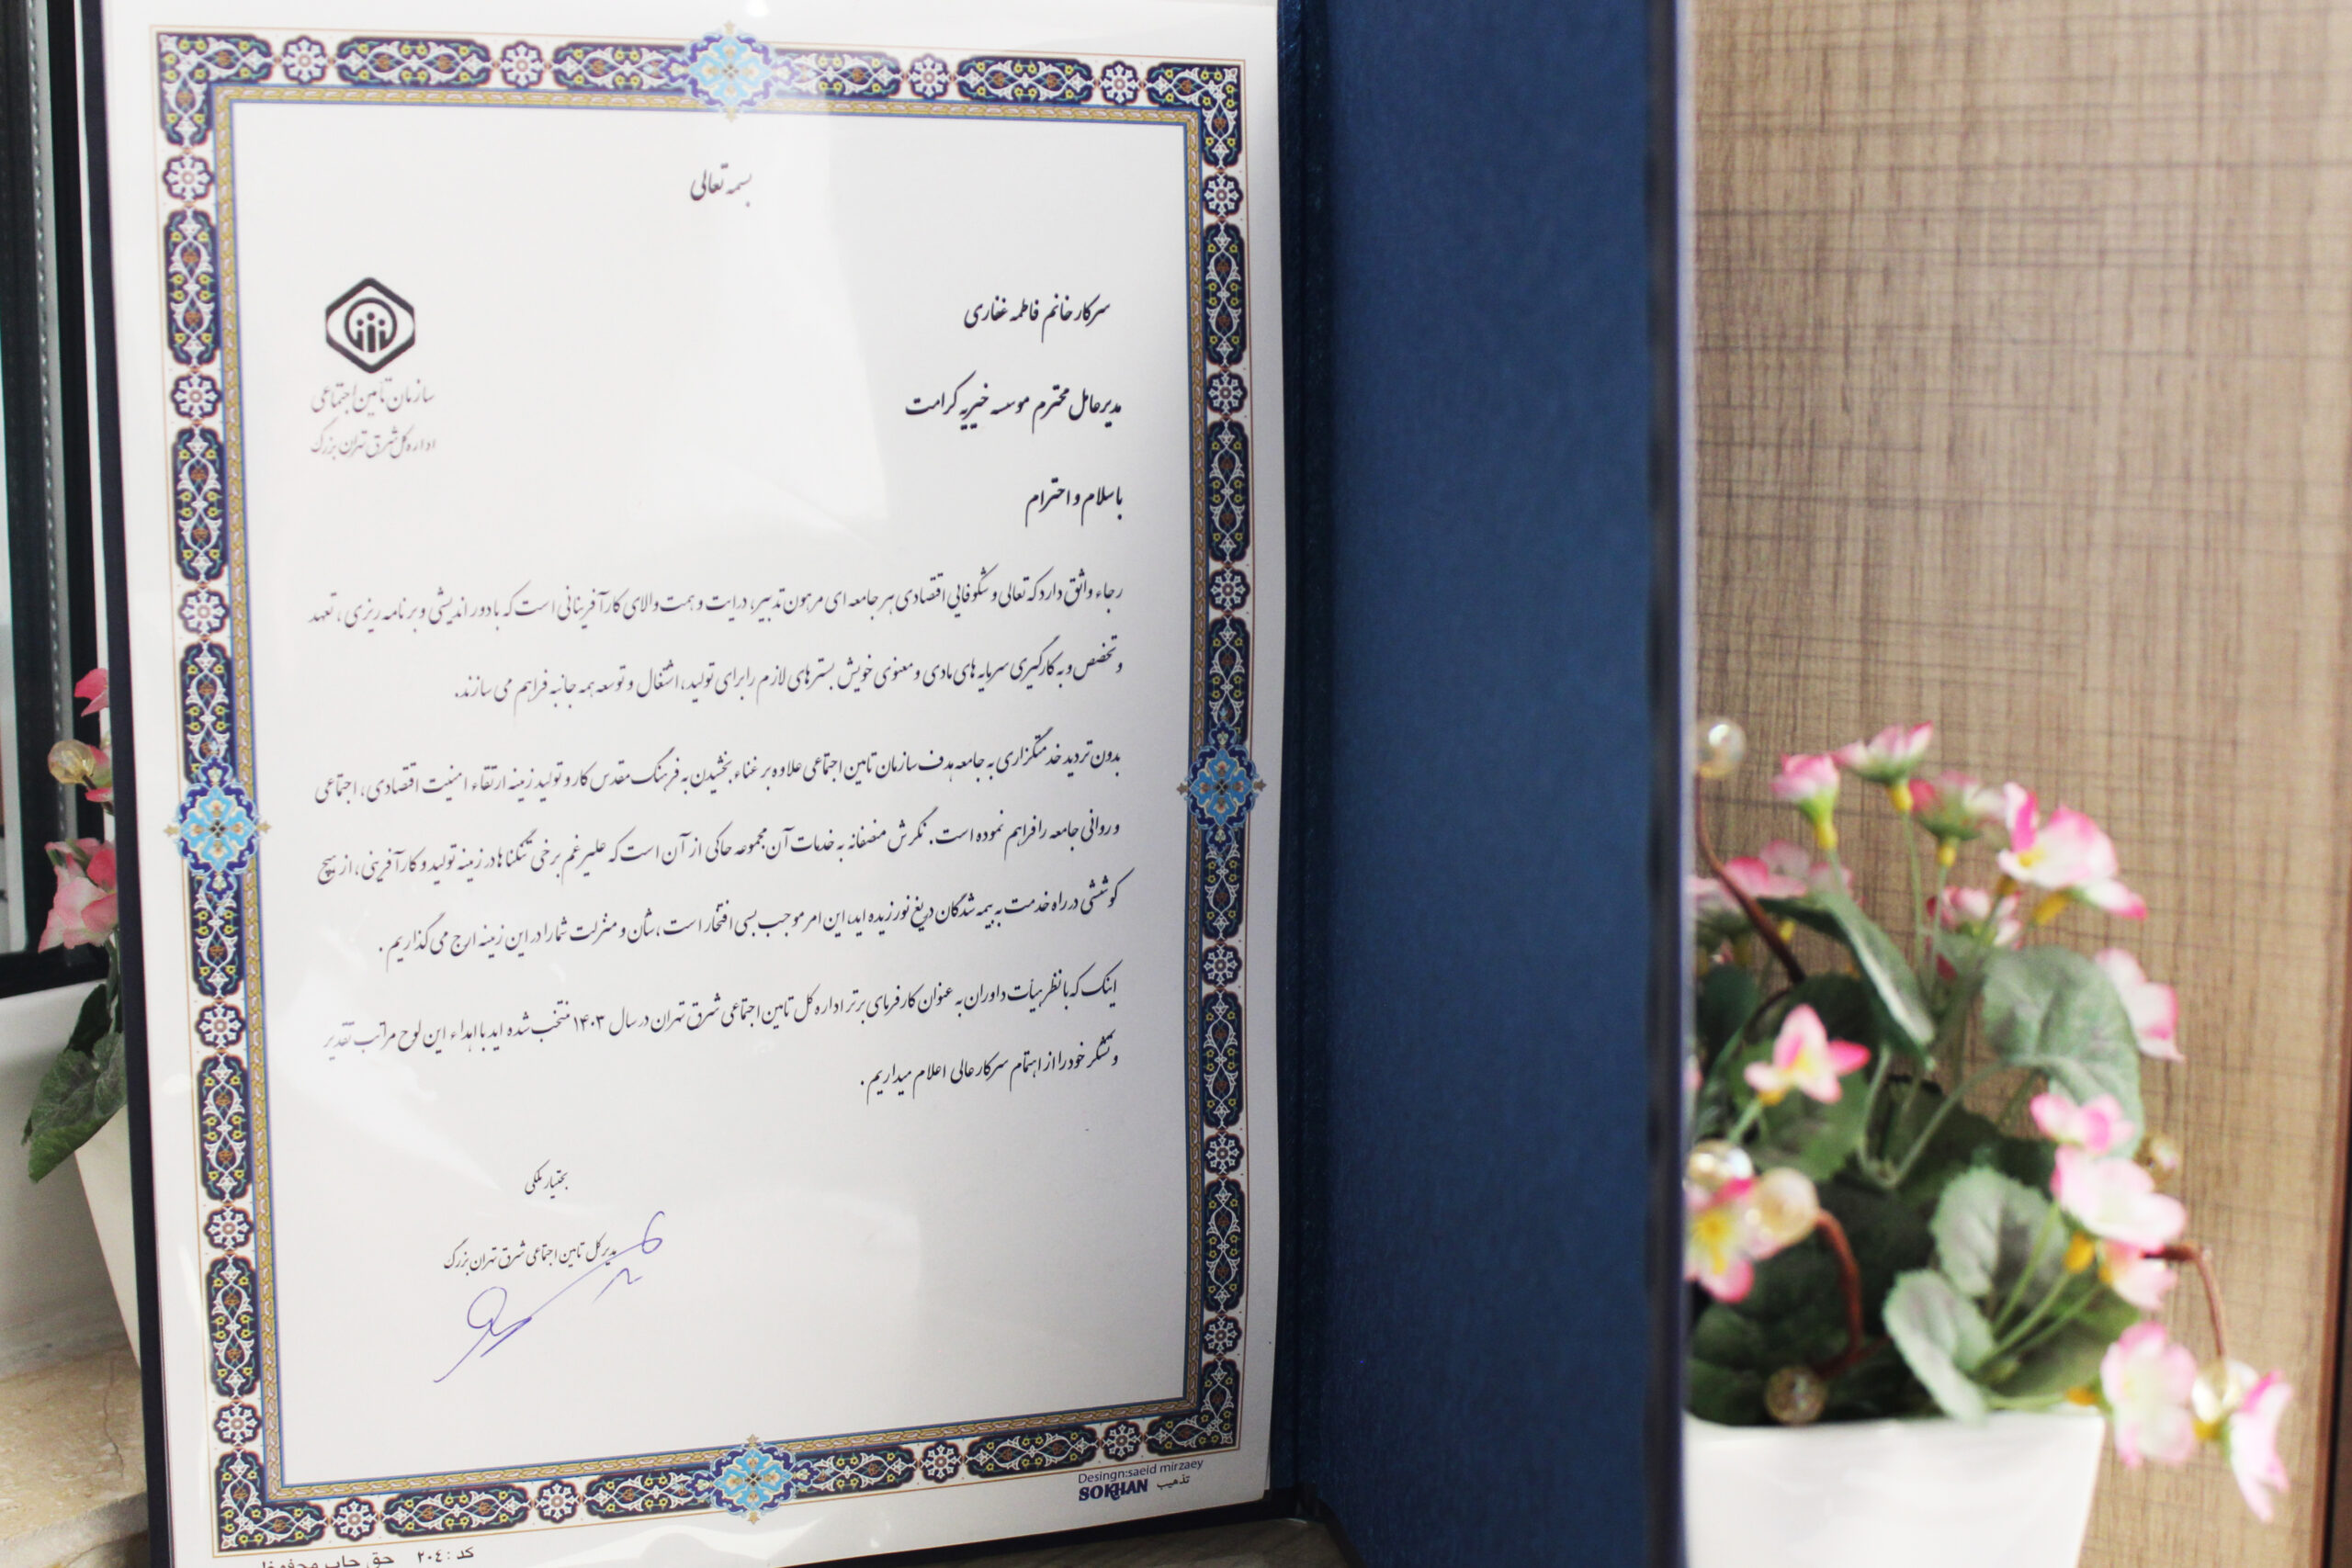 بسمه تعالی
سازمان تأمین اجتماعی
اداره کل شرق تهران بزرگ
سرکار خانم فاطمه غفاری
مدیرعامل محترم موسسه خیریه کرامت
با سلام و احترام
رجاء واثق دارد که تعالی و شکوفایی اقتصادی هر جامعه ای مرهون تدبیر، درایت و همت والای کارآفرینانی است که با دور اندیشی و برنامه ریزی ، تعهد
و تخصص و به کارگیری سرمایه های مادی و معنوی خویش بسترهای لازم را برای تولید، اشتغال و توسعه همه جانبه فراهم می سازند.
بدون تردید خدمتگزاری به جامعه هدف سازمان تامین اجتماعی علاوه بر غناء بخشیدن به فرهنگ مقدس کار و تولید زمینه ارتقاء امنیت اقتصادی، اجتماعی
و روانی جامعه را فراهم نموده است. نگرش منصفانه به خدمات آن مجموعه حاکی از آن است که علیرغم برخی تنگناها در زمینه تولید و کارآفرینی، از هیچ
کوششی در راه خدمت به بیمه شدگان دریغ نورزیده اید، این امر موجب بسی افتخار است، شأن و منزلت شما را در این زمینه ارج می گذاریم .
اینک که با نظر هیأت داوران به عنوان کارفرمای برتر اداره کل تامین اجتماعی شرق تهران در سال ۱۴۰۳ منتخب شده اید با اهداء این لوح مراتب تقدیر
و تشکر خود را از اهتمام سرکار عالی اعلام میداریم .
بختیار ملکی
مدیر کل تامین اجتماعی شرق تهران بزرگ
Desingn:saeid mirzaey
SOKHAN تذهیب
کد : ۲۰٤ حق چاپ محفوظ